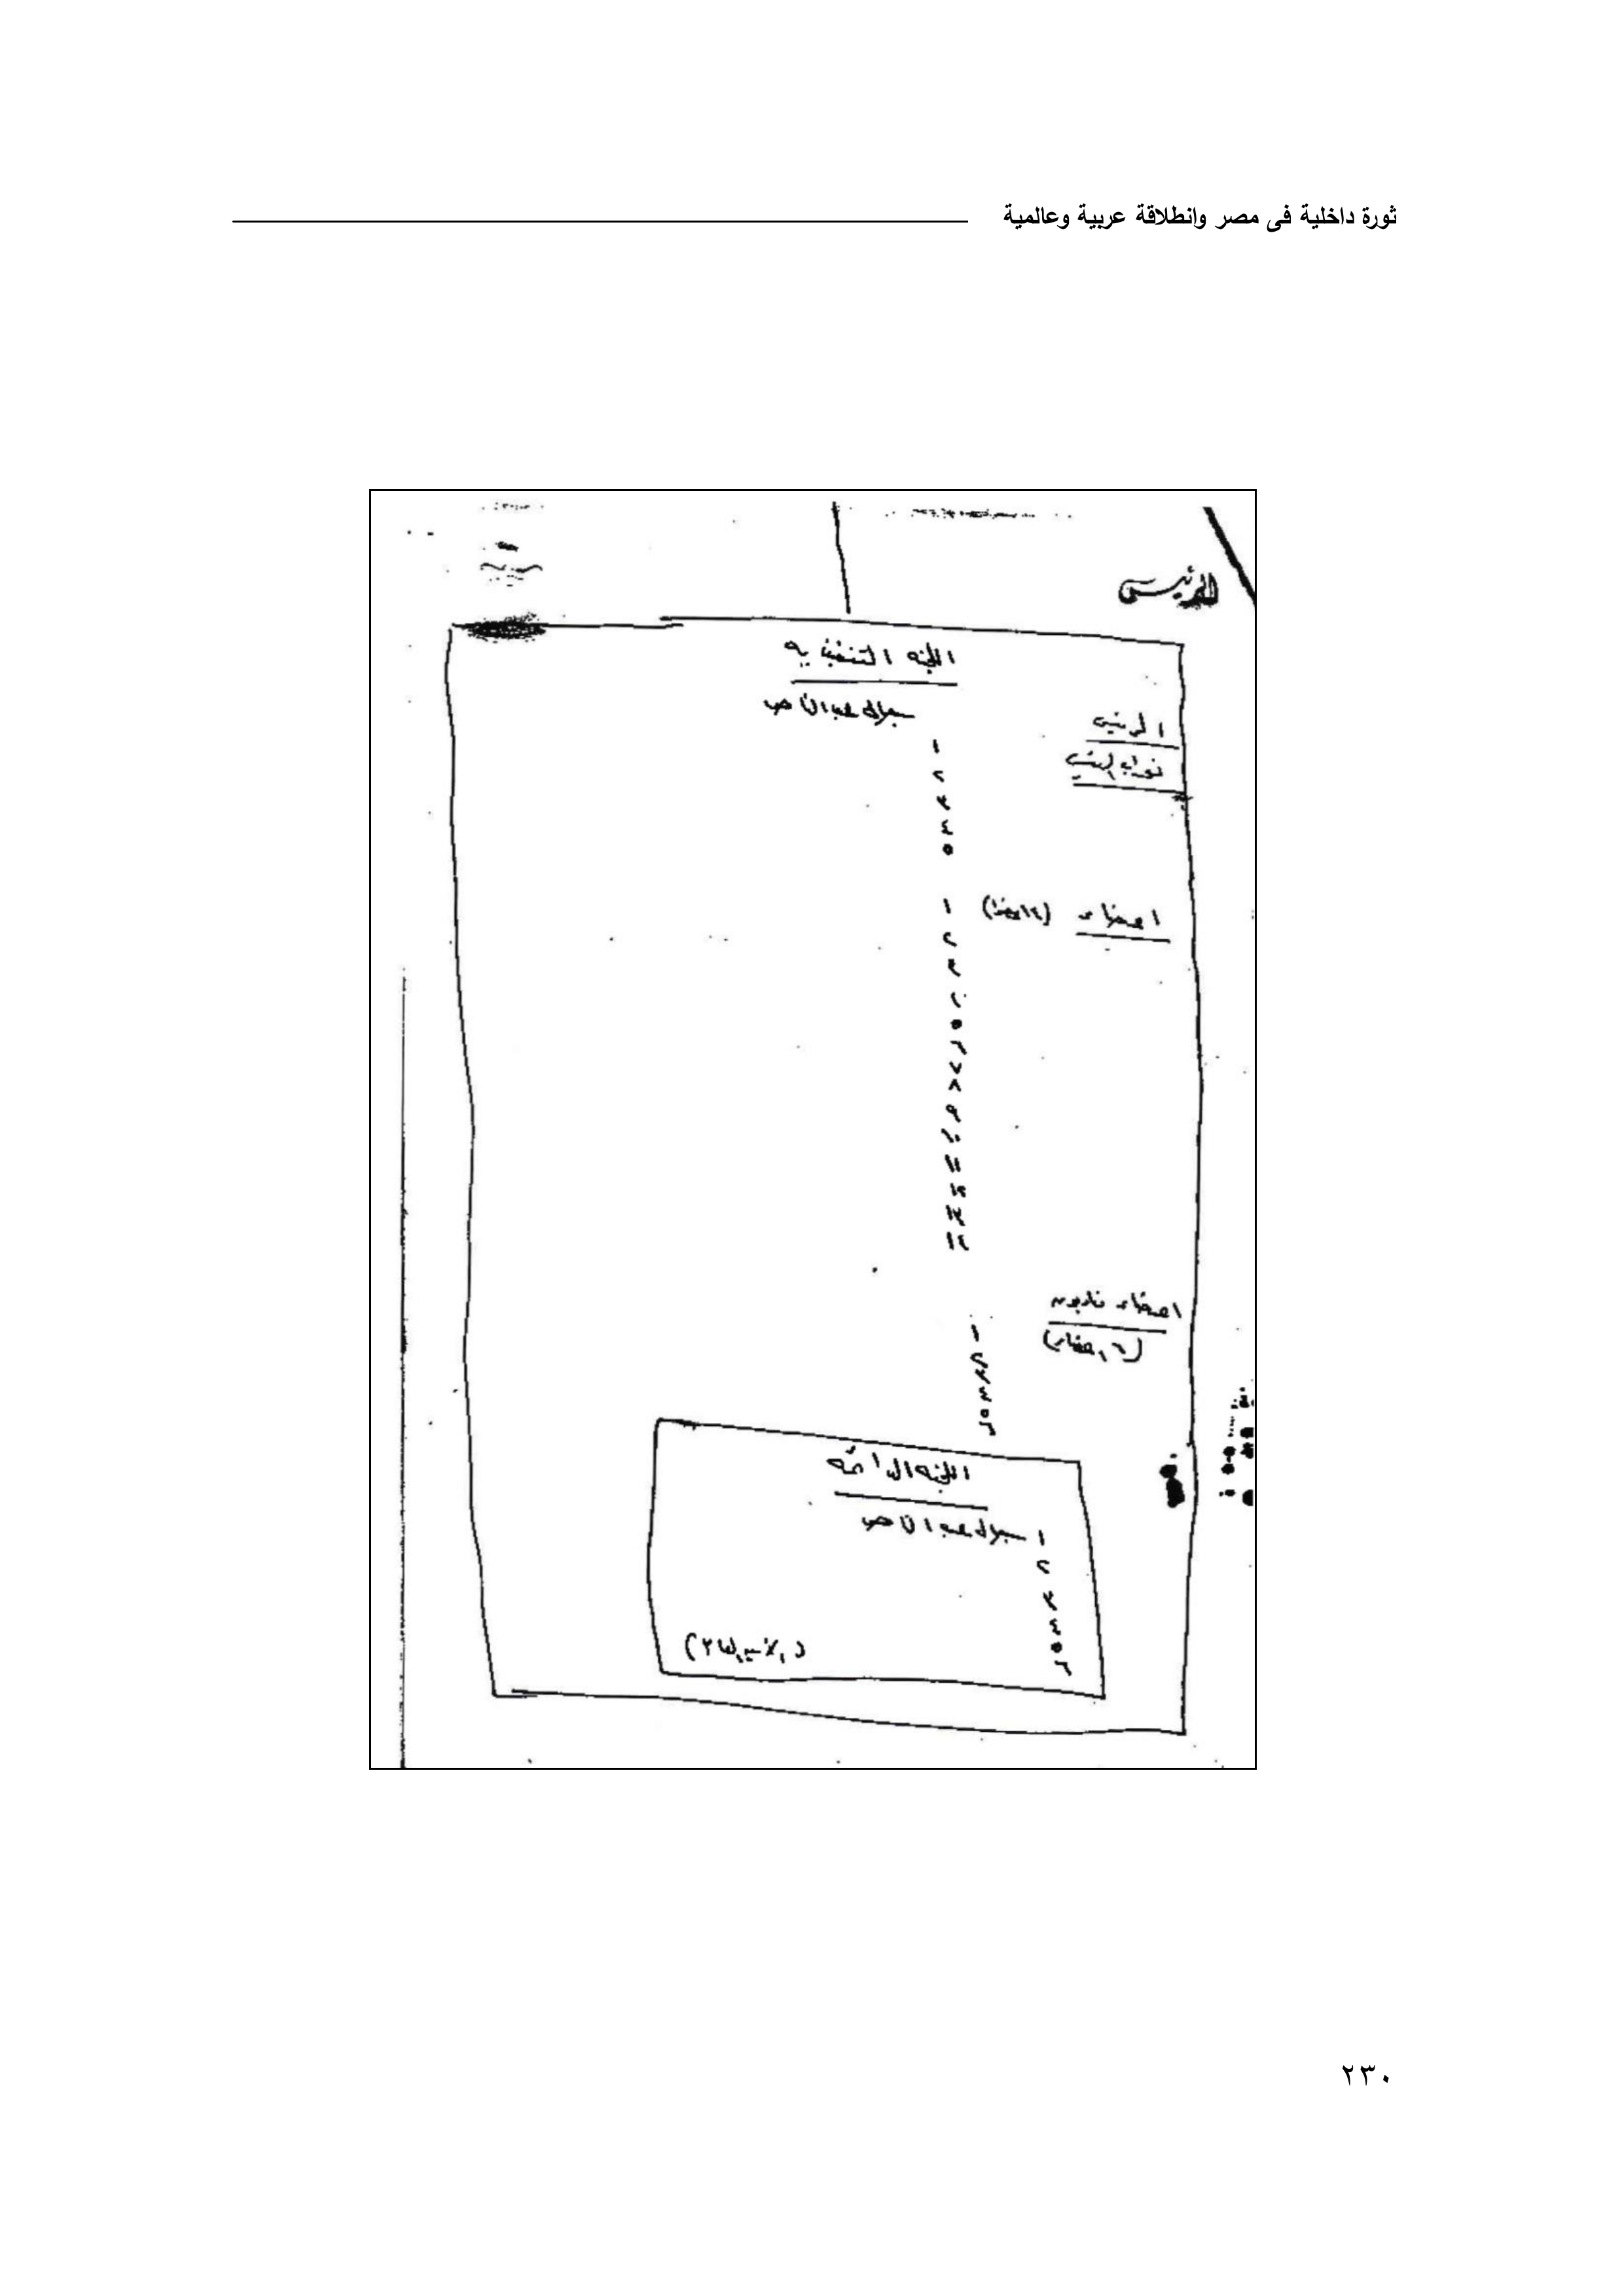 ثورة داخلية فى مصر وانطلاقة عربية وعالمية
الرئيس
اللجنه التنفيذيه
الرئيس جمال عبد الناصر
نواب الرئيس ١
٢
٣
٤
٥
اعضاء (١٤ عضوا) ١
٢
٣
٤
٥
٦
٧
٨
٩
١٠
١١
١٢
١٣
١٤
اعضاء
(٦ اعضاء) ١
٢
٣
٤
٥
٦
اللجنه الدائمه
١ جمال عبد الناصر
٢
٣
٤
٥
٦
٢٣٠